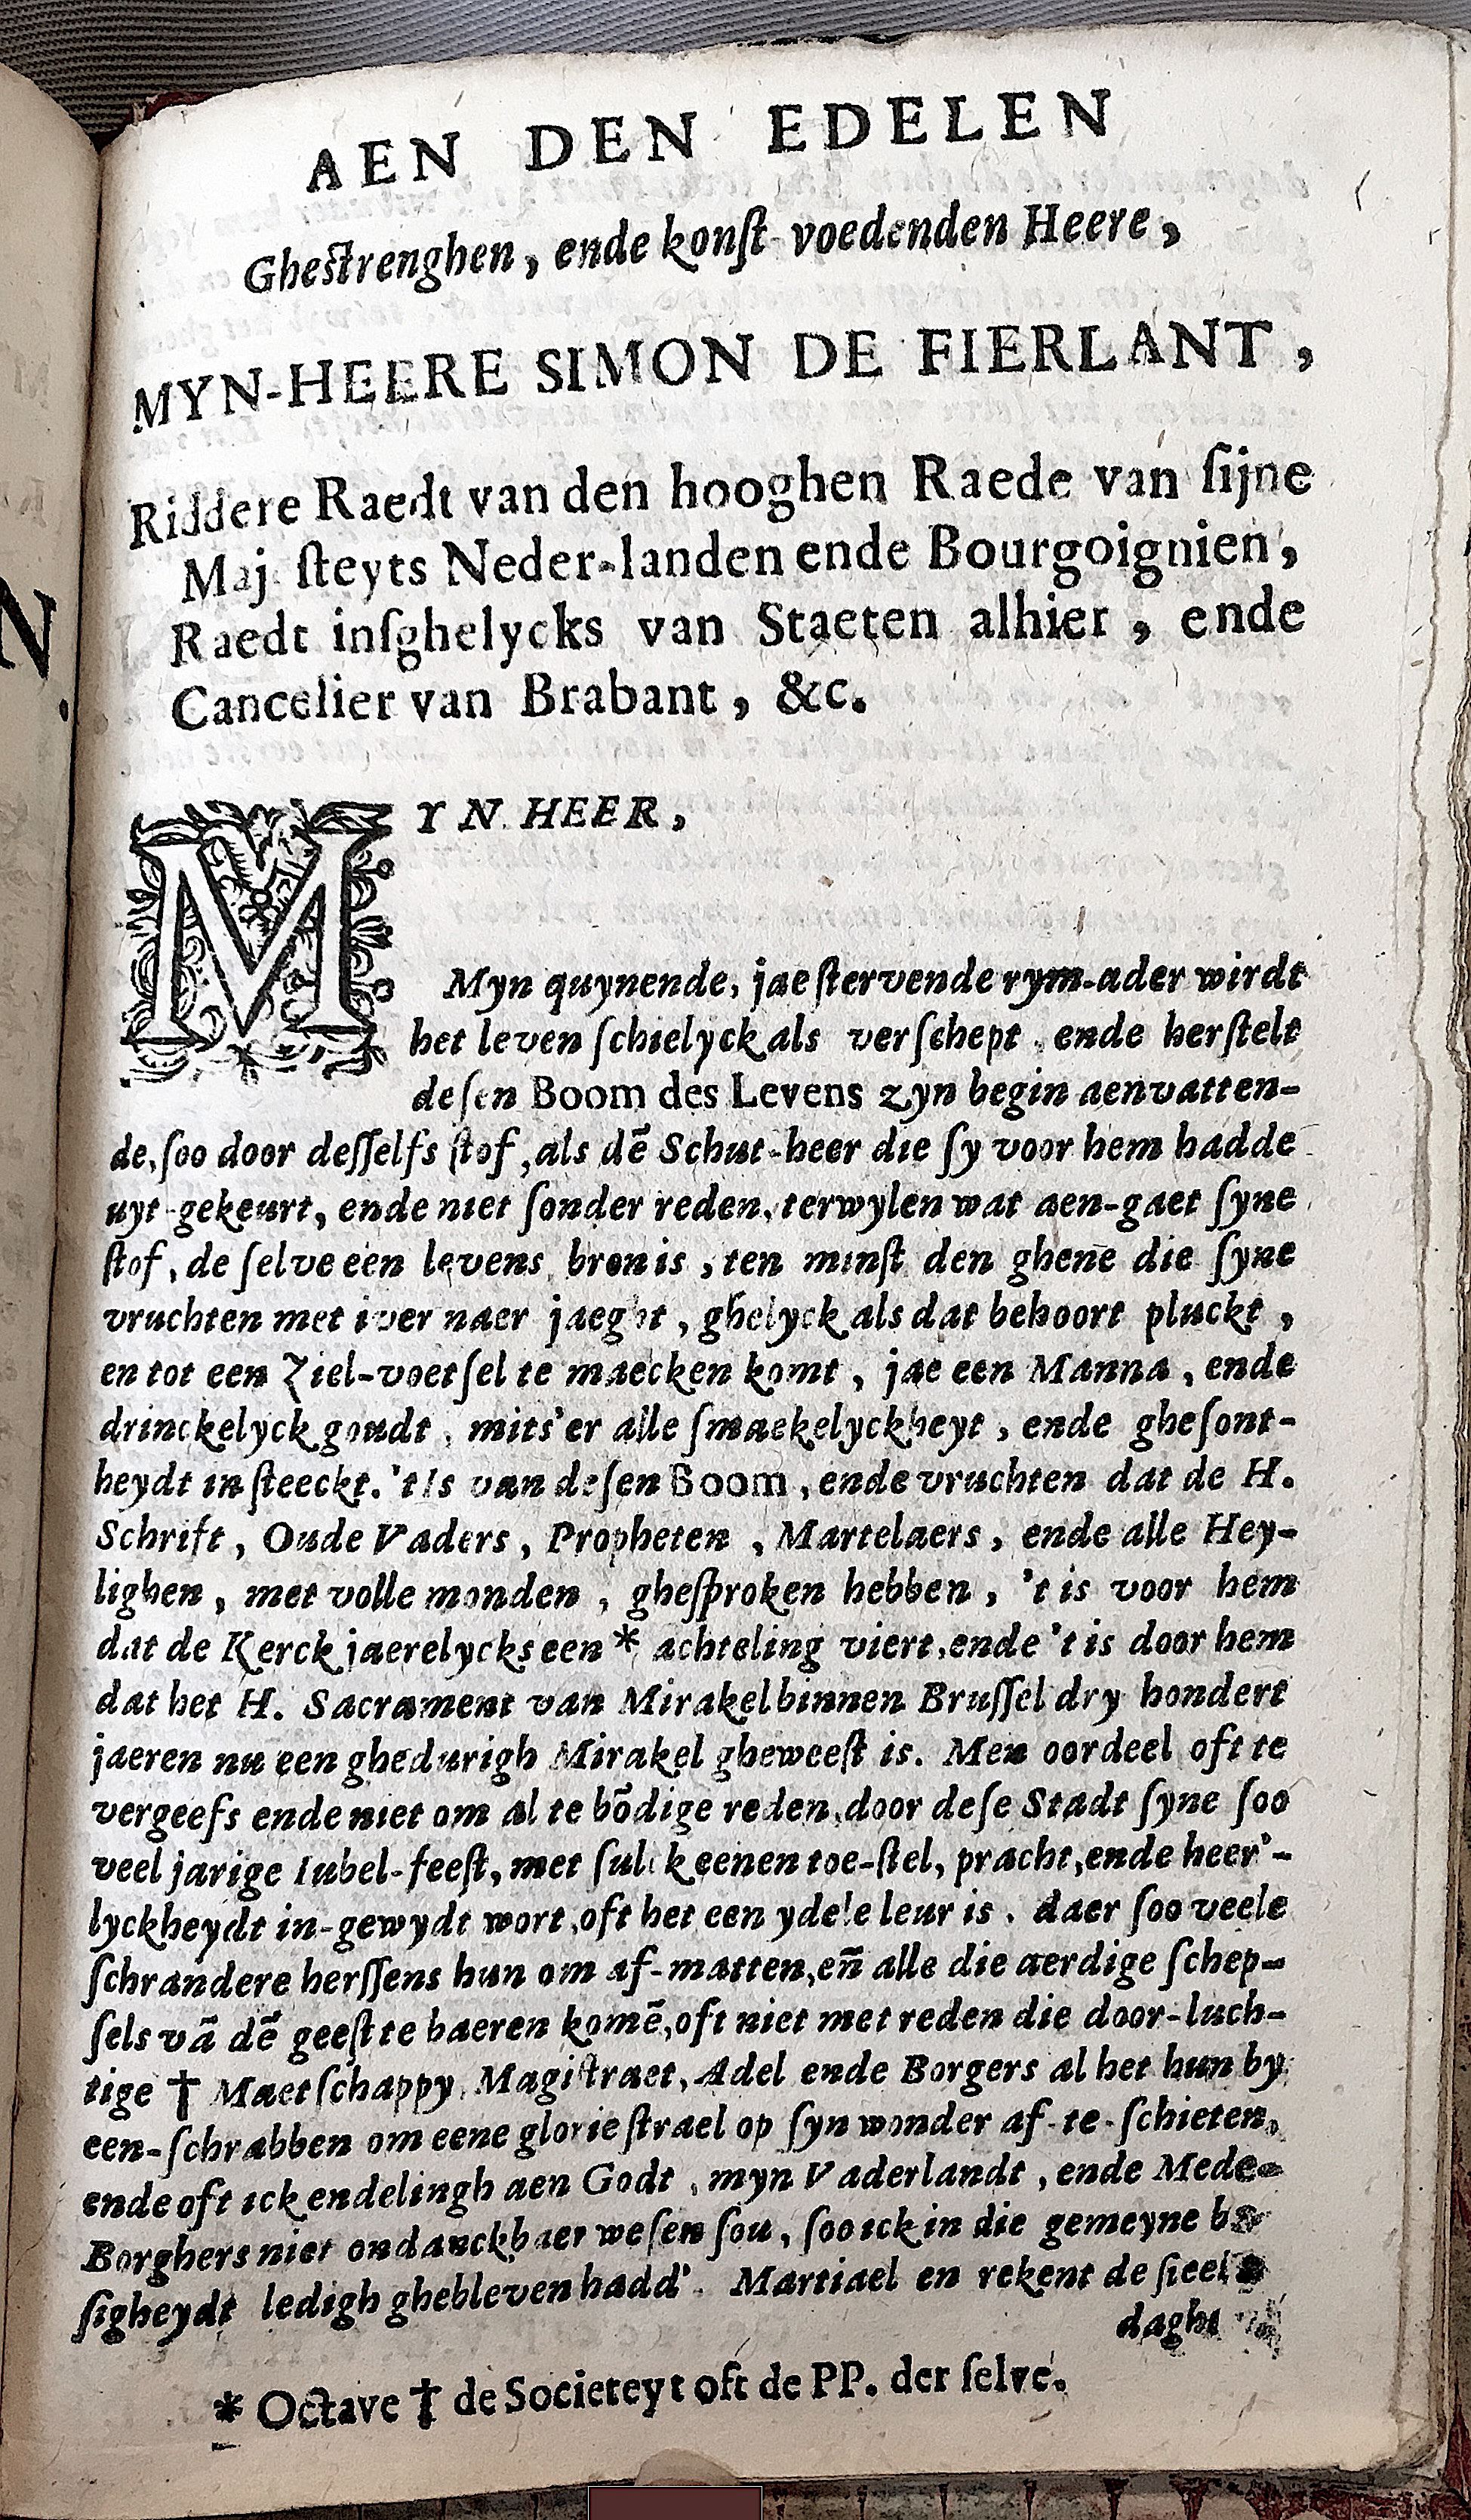 AEN DEN EDELEN
Gheſtrenghen, ende konſt-voedenden Heere,
MYN-HEERE SIMON DE FIERLANT,
Riddere Raedt van den hooghen Raede van ſijne
Maj ſteyts Neder-landen ende Bourgoignien,
Raedt inſghelycks van Staeten alhier, ende
Cancelier van Brabant, &c.
MYN HEER,
Myn quynende, jae ſtervende rym-ader wirdt
het leven ſchielyck als verſchept, ende herſtelt
deſen Boom des Levens zyn begin aenvatten-
de, ſoo door deſſelfs ſtof, als dē Schut-heer die ſy voor hem hadde
uyt-gekeurt, ende niet ſonder reden, terwylen wat aen-gaet ſyne
ſtof, de ſelve een levens bron is, ten minſt den ghene die ſyne
vruchten met iver naer jaeght, ghelyck als dat behoort pluckt,
en tot een Ziel-voetſel te maecken komt, jae een Manna, ende
drinckelyck goudt, mits'er alle ſmaekelyckheyt, ende gheſont-
heydt in ſteeckt. 't Is van deſen Boom, ende vruchten dat de H.
Schrift, Oude Vaders, Propheten, Martelaers, ende alle Hey-
lighen, met volle monden, gheſproken hebben, 't is voor hem
dat de Kerck jaerelycks een * achteling viert, ende 't is door hem
dat het H. Sacrament van Mirakel binnen Bruſſel dry hondert
jaeren nu een ghedurigh Mirakel gheweeſt is. Men oordeel oft te
vergeefs ende niet om al te bōdige reden, door deſe Stadt ſyne ſoo
veel jarige Iubel-feeſt, met ſulck eenen toe-ſtel, pracht, ende heer'-
lyckheydt in-gewydt wort, oft het een ydele leur is, daer ſoo veele
ſchrandere herſſens hun om af-matten, eñ alle die aerdige ſchep-
ſels vā dē geeſt te baeren komē, oft niet met reden die door-luch-
tige † Maetſchappy, Magiſtraet, Adel ende Borgers al het hun by
een-ſchrabben om eene glorie ſtrael op ſyn wonder af-te-ſchieten,
ende oft ick endelingh aen Godt, myn Vaderlandt, ende Mede-
Borghers niet ondanckbaer weſen ſou, ſoo ick in die gemeyne be-
ſigheydt ledigh ghebleven hadd'. Martiael en rekent de ſieel-
daght
* Octave † de Societeyt oft de PP. der ſelve.